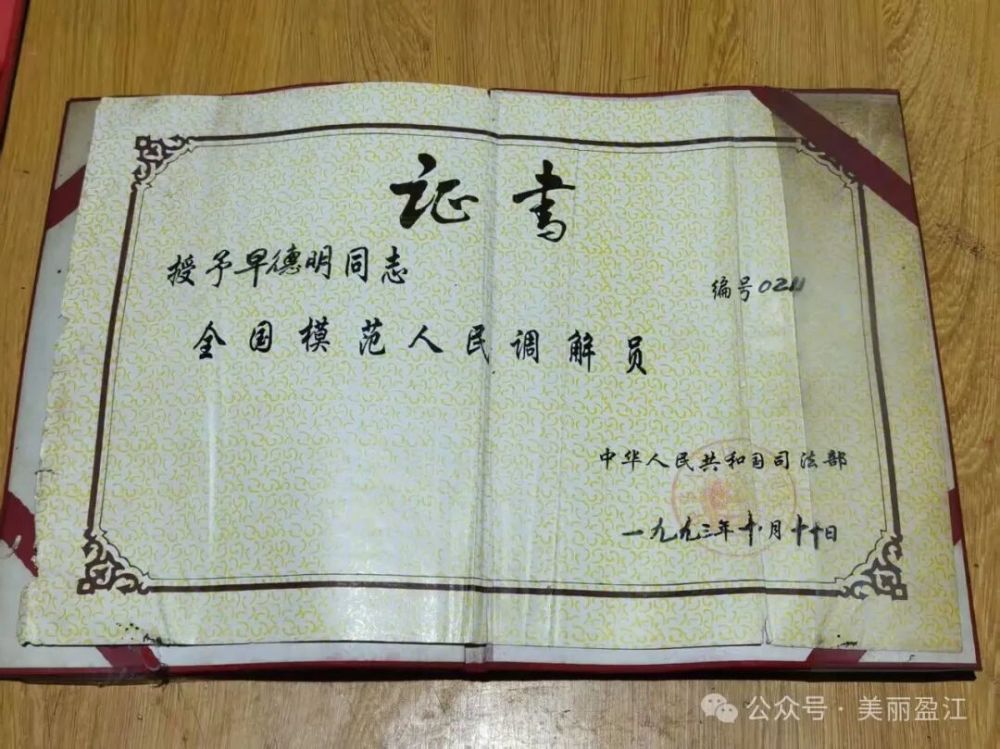 证书
授予早德明同志
编号0211
全国模范人民调解员
中华人民共和国司法部
一九九三年十月 日
公众号·美丽盈江